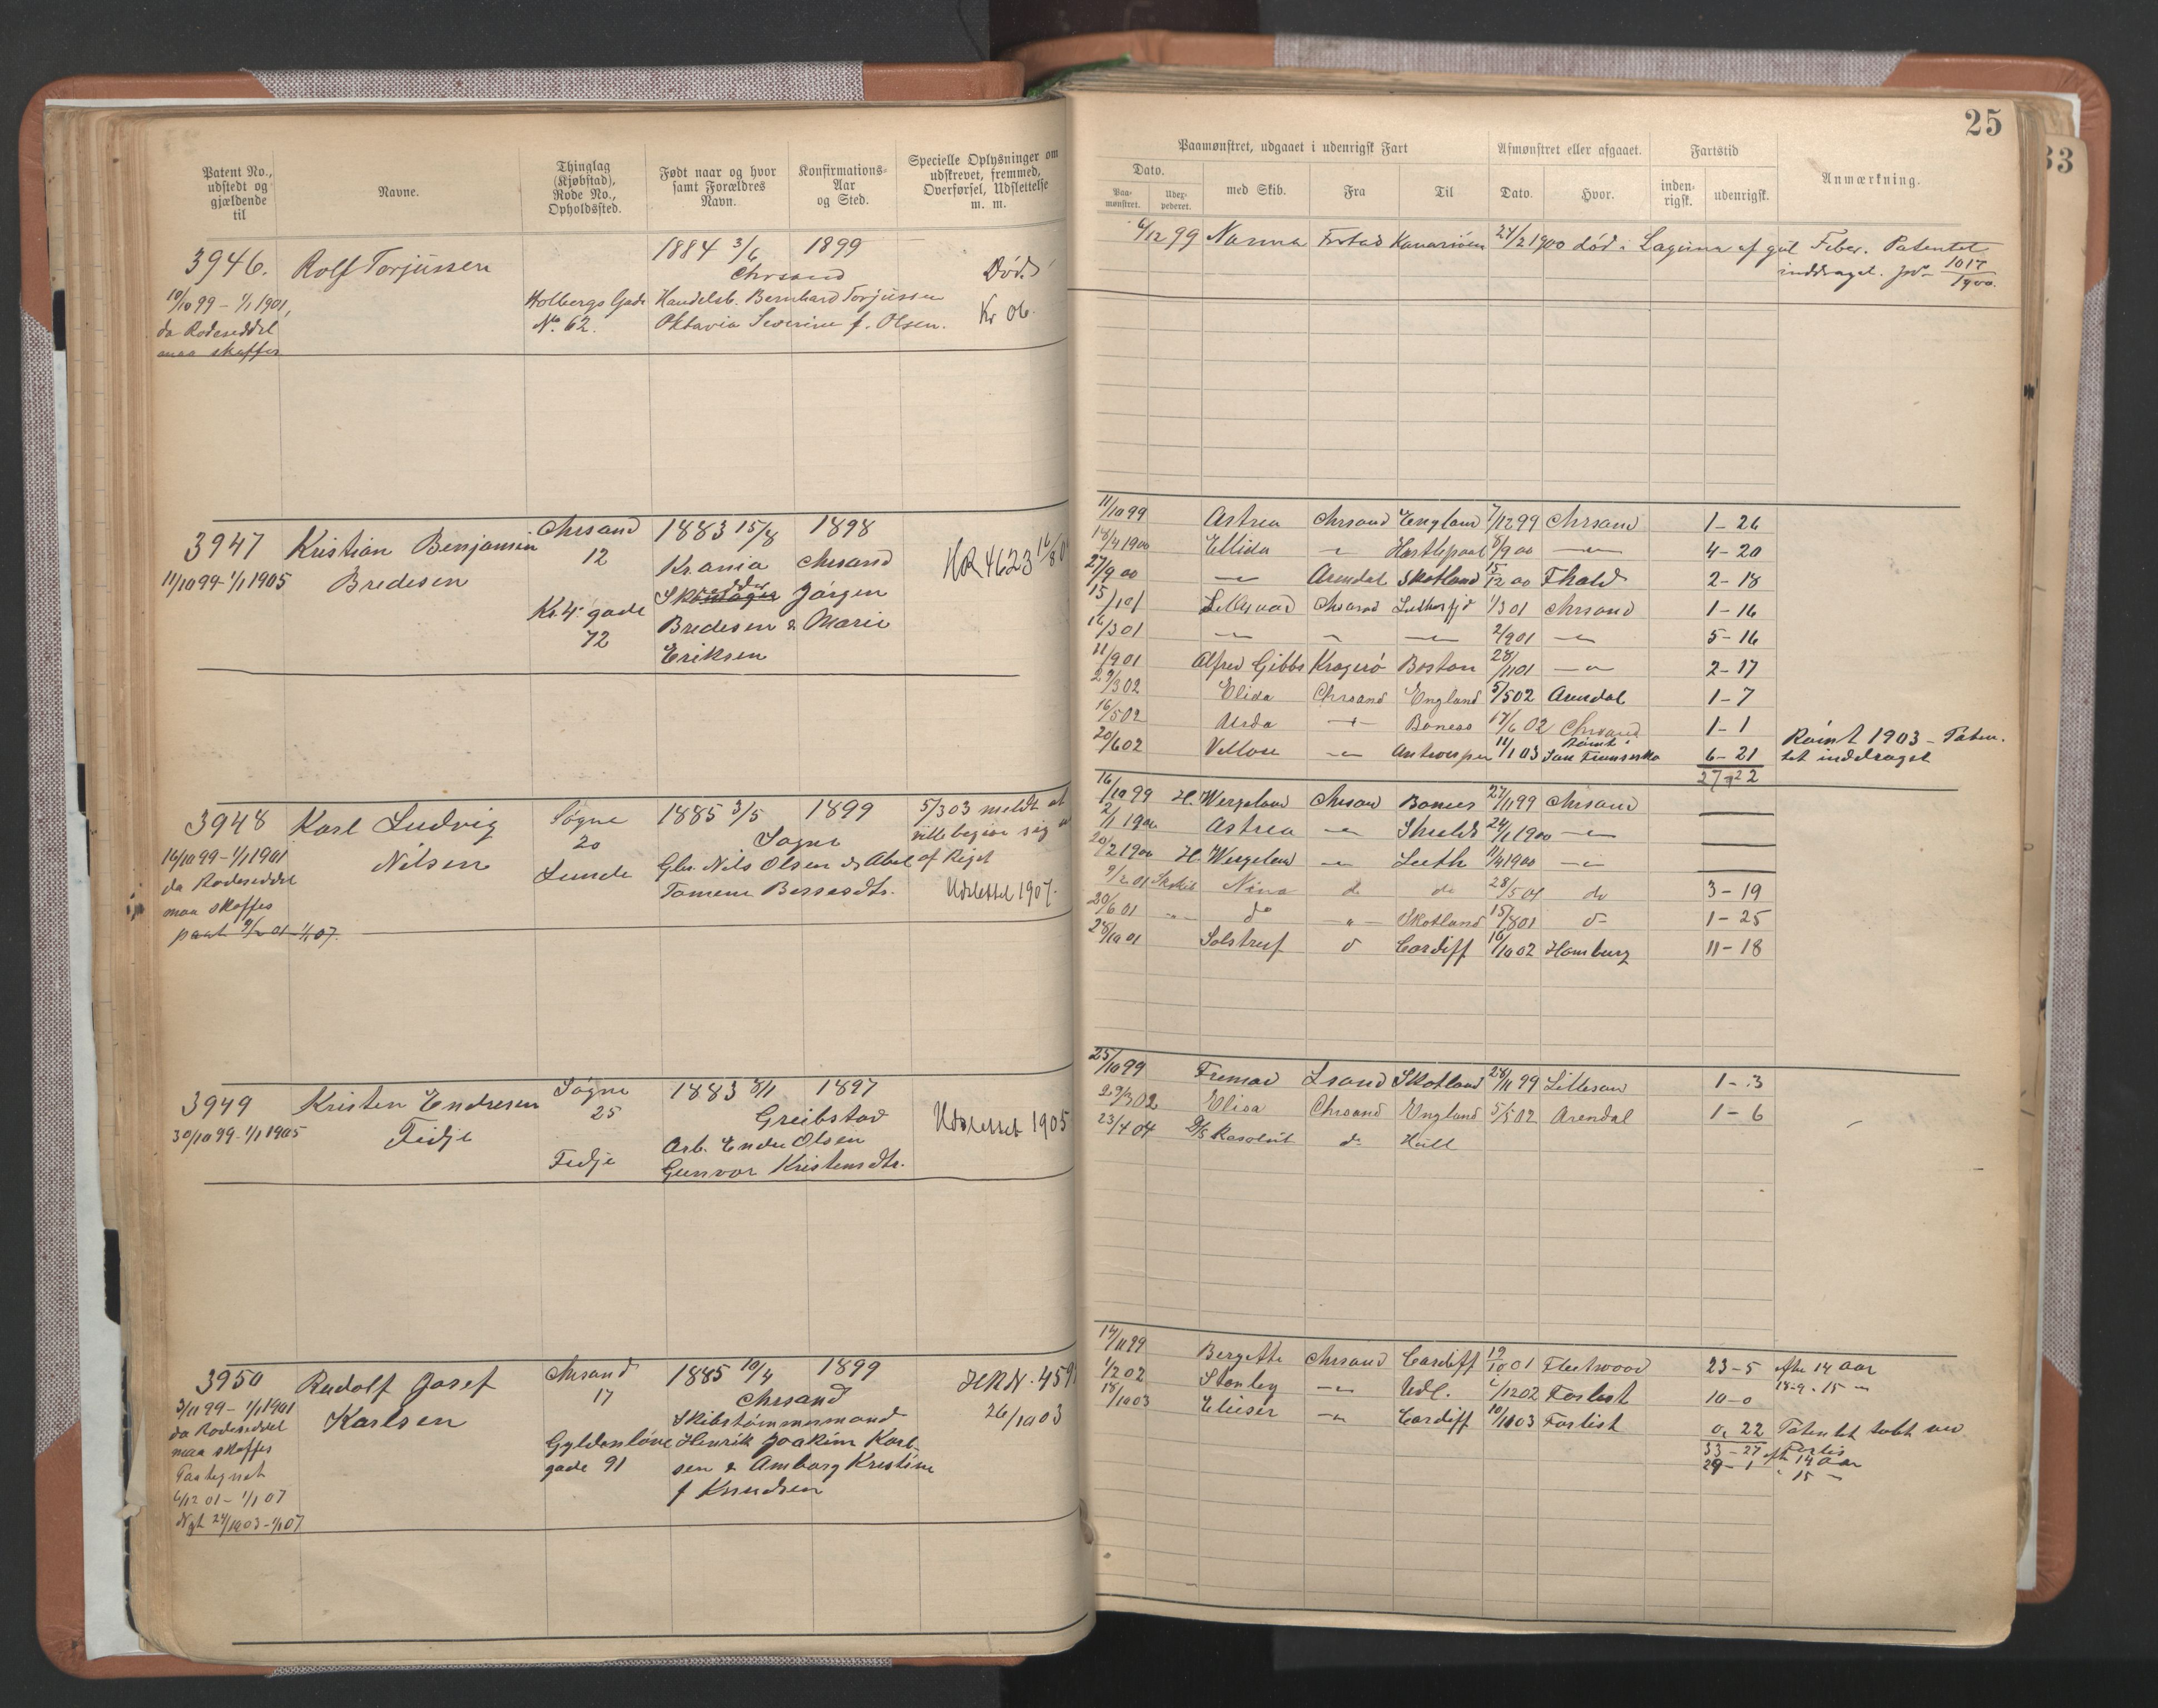 25
33
Patent No., udstedt og gjældende til
Navne.
Thinglag (Kjøbstad), Rode No., Opholdssted.
Født naar og hvor samt Forældres Navn.
Konfirmations-Aar og Sted.
Specielle Oplysninger om udskrevet, fremmed, Overførsel, Udslettelse m. m.
Paamønstret, udgaaet i udenrigsk Fart
Afmønstret eller afgaaet.
Fartstid
Anmærkning.
Dato.
Paamønstret.
Uderpederet.
med Skib.
Fra
Til
Dato.
Hvor.
indenrigsk.
udenrigsk.
3946. Rolf Torjussen 1884 3/6 1899
Chrsand
Død
10/10 99 – 1/1 1901, Holbergs Gade Handelsb. Bernhard Torjussen
da Rodeseddel No. 62. Oktavia Severine f. Olsen. Kr 06.
maa skaffes
6/12 99 Nanna Frstad Kanariöen 24/2 1900 död i Laguna af gul Feber. Patentet
inddraget. 1017/1900.
3947 Kristian Benjamin Chrsand 1883 15/8 1898
12 Krania Chrsand HR 4623 16/8
11/10 99 – 1/1 1905 Bredesen
Kr. 4. gade Jörgen
72 Bredesen & Marie
Eriksen
11/10 99 Astrea Chrsand England 7/12 99 Chrsand 1 – 26
18/4 1900 Ellida – " – Hartlepool 8/9 00 – " – 4 – 20
27/9 00 – " – Arendal Skotland 15/12 00 Fhald 2 – 18
15/1 01 Chrsand 1/3 01 Chrsand 1 – 16
16/3 01 – " – – " – – " – 2/9 01 – " – 5 – 16
11/9 01 Alfred Gibbs Kragerö Boston 28/11 01 – " – 2 – 17
29/3 02 Elida Chrsand England 5/5 02 Arendal 1 – 7
16/5 02 Urda – " – Boness 17/6 02 Chrsand 1 – 1
20/6 02 – " – Antwerpen 11/1 03 Römt San Fransisko 6 – 21 Römt 1903 – Paten-
27 – 22 tet inddraget
3948 Karl Ludvig Søgne 1885 3/5 1899 5/3 03 meldt at
20 Søgne ville begive sig
16/10 99 – 1/1 1901 Nilsen Lunde Gbr. Nils Olsen & Abel af Riget
da Rodeseddel Tomine Berresdtr. Udslettet 1907.
maa skaffes
paat 9/2 01 – 1/1 07.
16/10 99 H. Wergeland Chrsand Boness 27/11 99 Chrsand
2/1 1900 Astrea – " – Shields 24/1 1900 – " –
20/2 1900 H. Wergeland – " – Leith 9/4 1900 – " –
9/2 01 Nina do do 28/5 01 do 3 – 19
20/6 01 – " – do – " – Skotland 15/8 01 1 – 25
28/10 01 Solstreif Cardiff 16/10 02 Hamburg 11 – 18
3949 Kristen Endresen Søgne 1883 8/1 1897
25 Greibstad
30/10 99 – 1/1 1905 Fidje Arb. Endre Olsen Udslettet 1905
Fidje Gunvor Kristensdtr.
25/10 99 Fremad Lsand Skotland 28/11 99 Lillesand 1 – 3
29/3 02 Elida Chrsand England 5/5 02 Arendal 1 – 6
23/4 04 D/S Resolut do Hull
3950 Rudolf Josef Chrsand 1885 10/4 1899 HR N. 459
17 Chrsand
3/11 99 – 1/1 1901 Karlsen Skibstømmermand 26/10 03
da Rodeseddel Gyldenlöve Henrik Joakim Karl-
maa skaffes gade 91 sen & Amborg Kristine
Paategnet f. Knudsen
6/12 01 – 1/1 07
Nyt 24/10 03 – 1/1 07
14/11 99 Bergette Chrsand Cardiff 19/10 01 Fleetwood 23 – 5 efter 14 aar
1/2 02 Stanley – " – Udl. 2/12 02 Forlist 10 – 0 18 – 9 " 15 –
18/10 03 Elieser – " – Cardiff 10/11 03 Forlist 0, 22 Patentet tabt ved
33 – 27 efter 14 aar Forlis
29 – 1 " 15 –